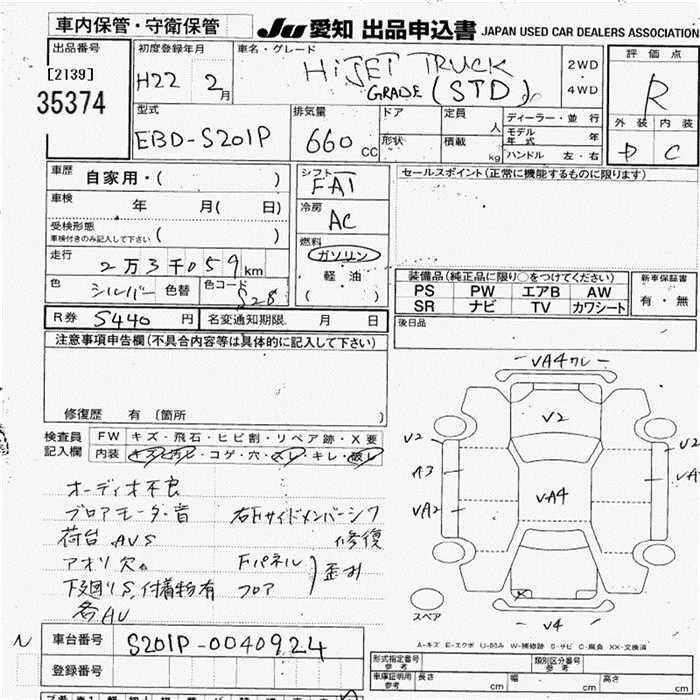 車内保管・守衛保管
JU 愛知 出品申込書 JAPAN USED CAR DEALERS ASSOCIATION
出品番号
[2139]
35374
初度登録年月
H22 2月
車名・グレード
HIJET TRUCK
GRADE (STD)
2WD
・
4WD
評価点
R
外装 内装
D C
型式
EBD-S201P
排気量
660 cc
ドア
形状
定員
人
積載
kg
ディーラー・並行
モデル年式 年
ハンドル 左・右
車歴
自家用・( )
車検
年 月( 日)
受検形態
車検付きのみ記入して下さい ( )
走行
2万3千059km
色 シルバー 色替 色コード S28
シフト
FAT
冷房
AC
燃料
ガソリン
軽・油
( )
セールスポイント(正常に機能するものに限ります)
装備品(純正品に限り○をつけてください)
PS PW エアB AW
SR ナビ TV カワシート
新車保証書
有・無
R券 5440 円 名変通知期限 月 日
後日品
注意事項申告欄(不具合内容等は具体的に記入して下さい)
修復歴 有 〔箇所 〕
検査員記入欄
FW キズ・飛石・ヒビ割・リペア跡・X要
内装 キズ・汚レ・コゲ・穴・スレ・キレ・破レ
オーディオ不良
ブロアモーター音 右Fサイドメンバーシワ
荷台AVS 修復
アオリ欠 Fパネル
フロア 歪み
下廻りS,付着物有
各AV
VA4ワレ
V2
V2
V2
A3
VA4
VA2
V4
スペア
A-キズ E-エクボ U-凹み W-補修跡 S-サビ C-腐食 XX-交換済
車台番号 S201P-0040924
登録番号
形式指定番号 参考
類別区分番号 参考
車庫証明用 参考 長さ cm 幅 cm 高さ cm